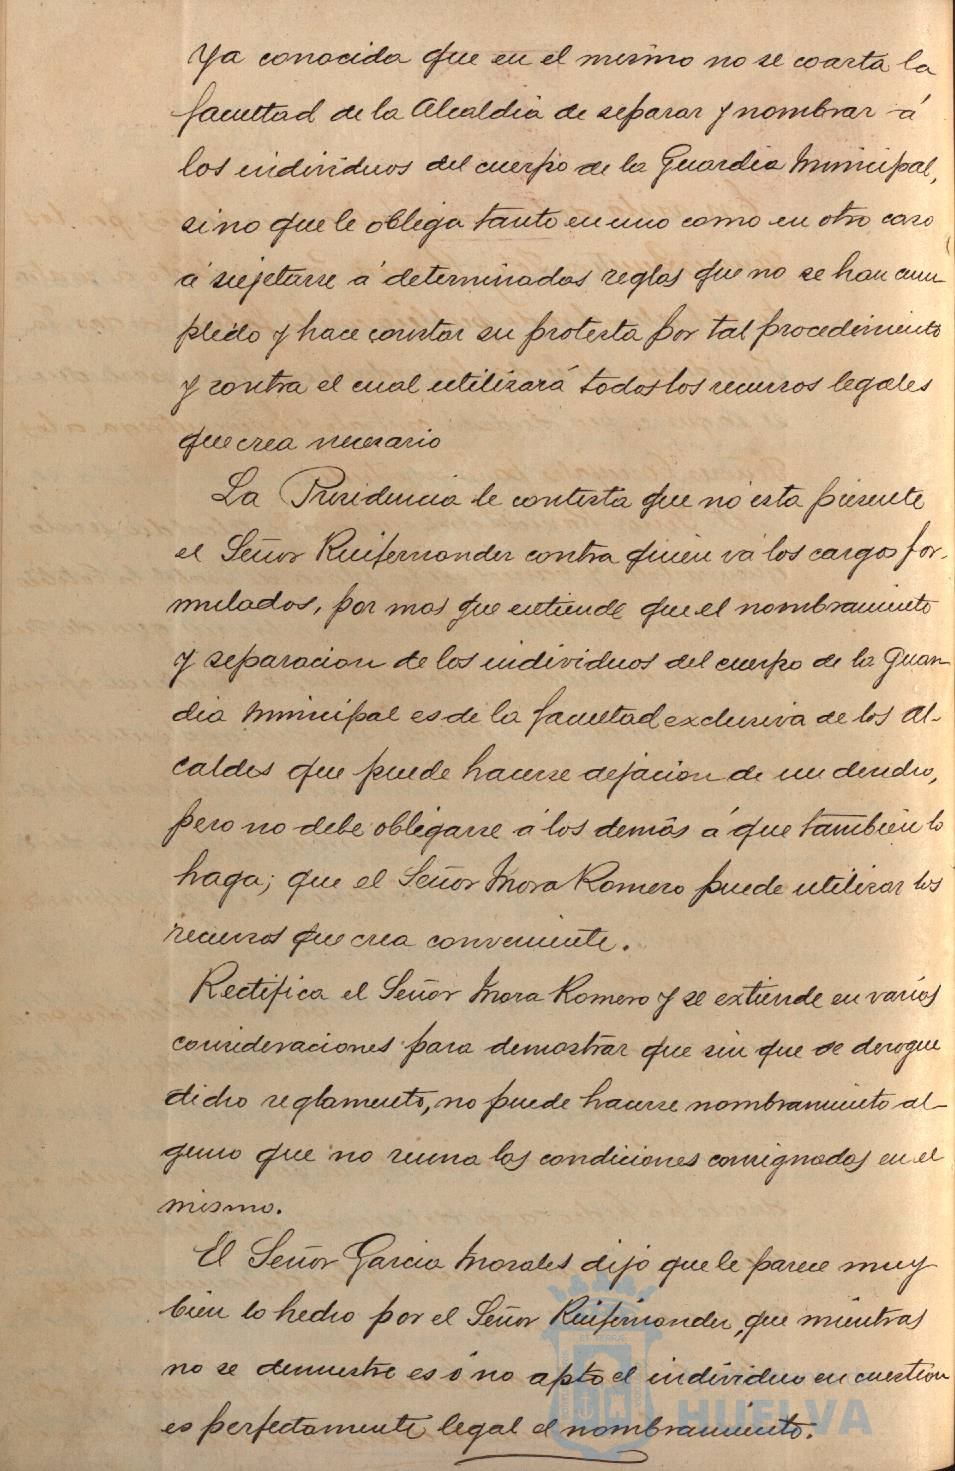 Ya conocida que en el mismo no se coarta la
facultad de la Alcaldia de separar y nombrar á
los individuos del cuerpo de la Guardia Municipal,
sino que le obliga tanto en uno como en otro caso
á sujetarse á determinadas reglas que no se han cum
plido y hace constar su protesta por tal procedimiento
y contra el cual utilizará todos los recursos legales
que crea necesario
La Presidencia le contesta que no esta presente
el Señor Ruifernandez contra quien vá los cargos for-
mulados, por mas que entiende que el nombramiento
y separacion de los individuos del cuerpo de la Guar
dia Municipal es de la facultad exclusiva de los Al-
caldes que puede hacerse dejacion de un derecho,
pero no debe obligarse á los demás á que tambien lo
haga; que el Señor Mora Romero puede utilizar los
recursos que crea conveniente.
Rectifica el Señor Mora Romero y se extiende en varios
consideraciones para demostrar que sin que se derogue
dicho reglamento, no puede hacerse nombramiento al-
guno que no reuna las condiciones consignadas en el
mismo.
El Señor Garcia Morales dijo que le parece muy
bien lo hecho por el Señor Ruifernandez, que mientras
no se demuestre es ó no apto el individuo en cuestion
es perfectamente legal el nombramiento.
HUELVA